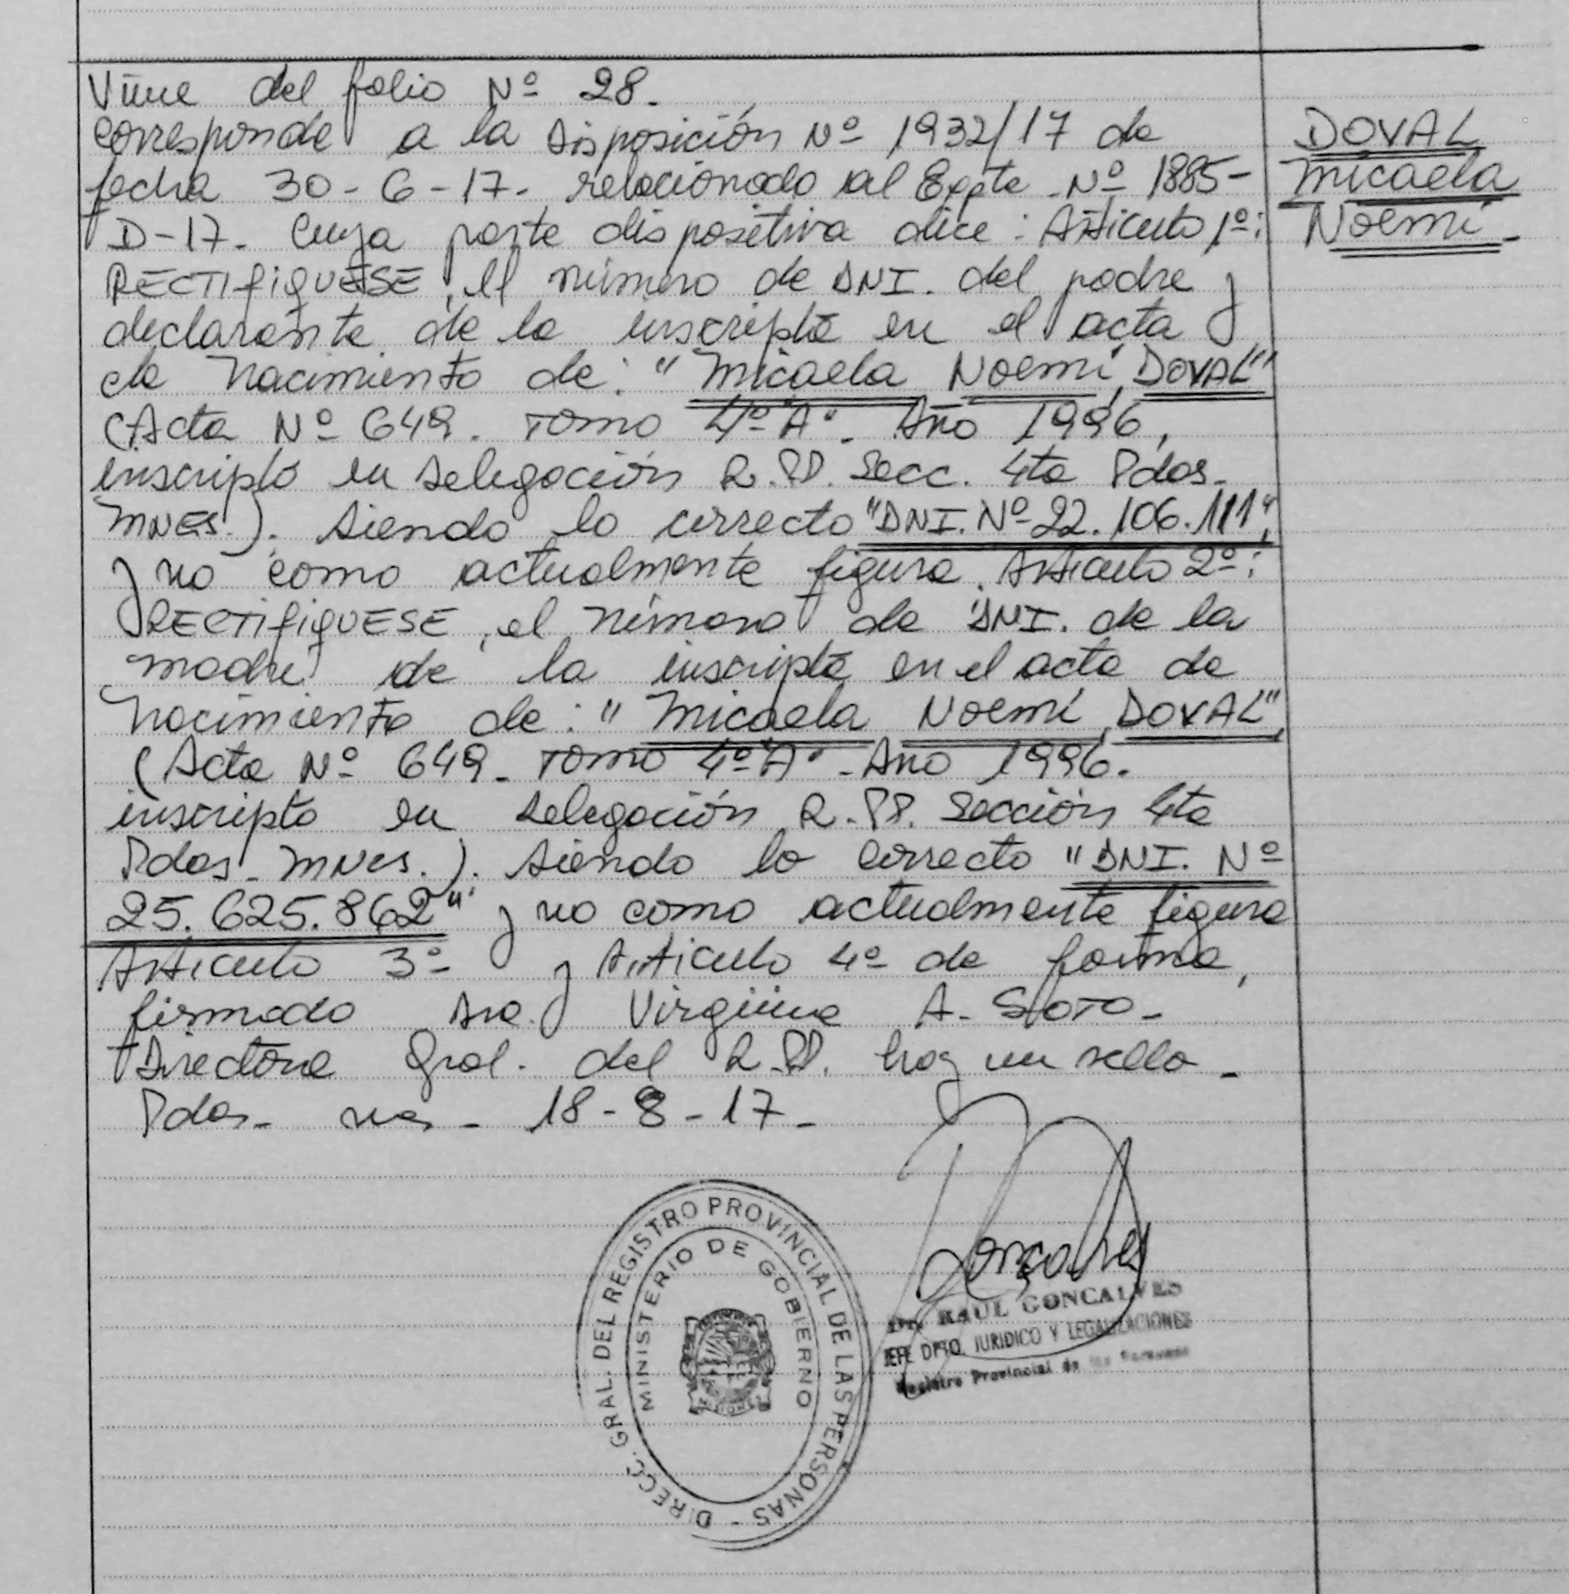 Viene del folio Nº 28.
Corresponde a la Disposición Nº 1932/17 de
fecha 30-6-17. relacionado al Expte. Nº 1885-
D-17. Cuya parte dispositiva dice: Articulo 1º:
RECTIFIQUESE, el número de DNI. del padre y
declarante de la inscripta en el acta
de Nacimiento de: "Micaela Noemí DOVAL"
(Acta Nº 649. Tomo 4º "A". Año 1996,
inscripto en Delegación R.PP. Secc. 4ta Pdas.
MNES.). Siendo lo correcto "DNI. Nº 22.106.111",
y no como actualmente figura. Articulo 2º:
RECTIFIQUESE, el número de DNI. de la
madre de la inscripta en el acta de
Nacimiento de: "Micaela Noemí DOVAL"
(Acta Nº 649. Tomo 4º "A". Año 1996.
inscripto en Delegación R.PP. Sección 4ta
Pdas. MNES.). Siendo lo correcto "DNI. Nº
25.625.862" y no como actualmente figura
Articulo 3º y Articulo 4º de forma,
firmado Dra. Virginia A. SOTO-
Directora Gral. del R.PP. hay un sello-
Pdas. Mes - 18-8-17-
DOVAL
Micaela
Noemí-
DIRECC. GRAL. DEL REGISTRO PROVINCIAL DE LAS PERSONAS -
MINISTERIO DE GOBIERNO
MISIONES
RAUL GONCALVES
JEFE DPTO. JURIDICO Y LEGALIZACIONES
Registro Provincial de las Personas